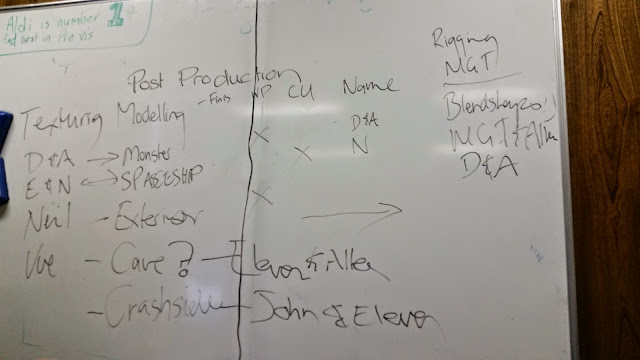 Aldi is number 1st
best in the vis
Post Production
Texturing Modelling - Fins WP CU Name
X D&A
D&A → Monster X N
E&N ↔ SPACESHIP
X
Neil - Exterior →
Vue - Cave? - Eleven & Allen
- Crashsite - John & Eleven
Rigging
MGT
Blendshapes
MGT & Allen
D&A